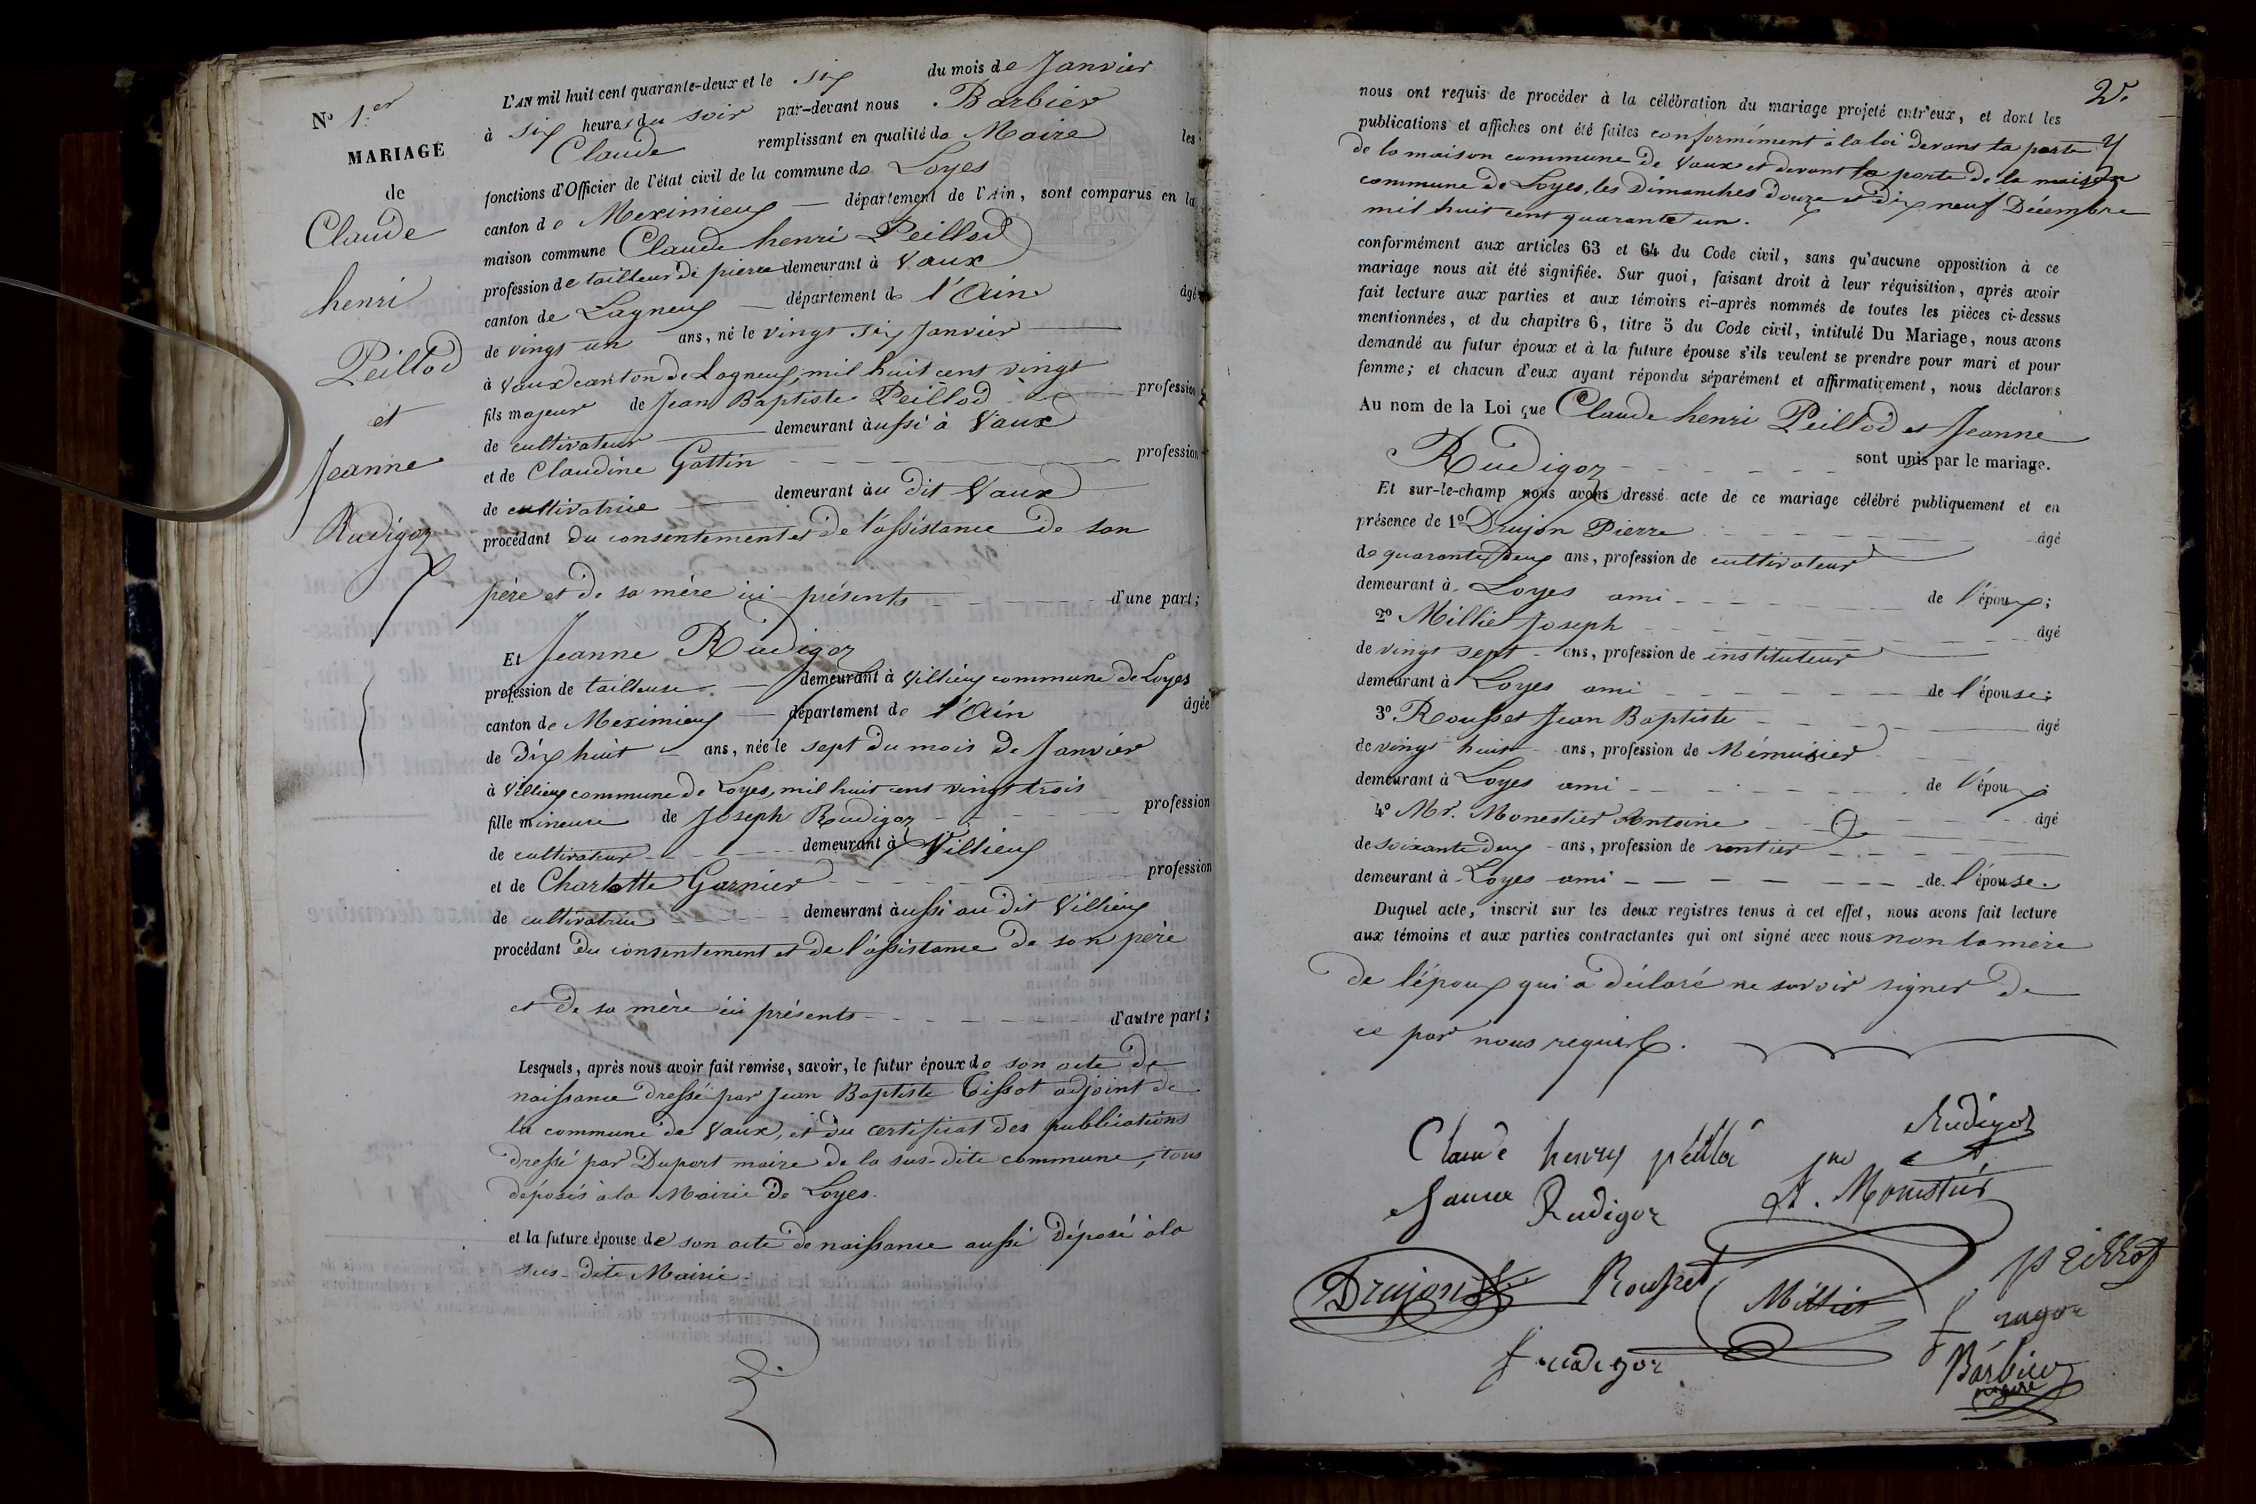 N° 1.er
MARIAGE
de
Claude
henri
Peillod
et
Jeanne
Rudigoz
L'AN mil huit cent quarante-deux et le six du mois de Janvier
à six heures du soir par-devant nous Barbier
Claude remplissant en qualité de Maire les
fonctions d'Officier de l'état civil de la commune de Loyes
canton de Meximieux — département de l'Ain, sont comparus en la
maison commune Claude henri Peillod
profession de tailleur de pierre demeurant à Vaux
canton de Lagneux — département de l'Ain âgé
de vingt un ans, né le vingt six Janvier
à Vaux canton de Lagneux, mil huit cent vingt
fils majeur de Jean Baptiste Peillod profession
de cultivateur demeurant àussi à Vaux
et de Claudine Gottin profession
de cultivatrice demeurant àu dit Vaux
procédant du consentement et de l'assistance de son
père et de sa mère ici présents d'une part;
Et Jeanne Rudigoz
profession de tailleuse — demeurant à Villieux commune de Loyes
canton de Meximieux — département de l'Ain âgée
de dix huit ans, née le sept du mois de Janvier
à Villieux commune de Loyes, mil huit cent vingt trois
fille mineure de Joseph Rudigoz profession
de cultivateur demeurant à Villieux
et de Charlotte Garnier profession
de cultivatrice demeurant àussi au dit Villieux
procédant du consentement et de l'assistance de son père
et de sa mère ici présents d'autre part;
Lesquels, après nous avoir fait remise, savoir, le futur époux de son acte de
naissance dressé par Jean Baptiste Tissot adjoint de
la commune de Vaux, et du certificat des publications
dressé par Duport maire de la sus-dite commune, tous
déposés à la Mairie de Loyes.
et la future épouse de son acte de naissance aussi déposé à la
sus-dite Mairie.
2.
nous ont requis de procéder à la célébration du mariage projeté entr'eux, et dont les
publications et affiches ont été faites conformément à la loi devant la porte
de la maison commune de Vaux et devant la porte de la maison
commune de Loyes, les Dimanches douze et dix neuf Décembre
mil huit cent quarante un.
conformément aux articles 63 et 64 du Code civil, sans qu'aucune opposition à ce
mariage nous ait été signifiée. Sur quoi, faisant droit à leur réquisition, après avoir
fait lecture aux parties et aux témoins ci-après nommés de toutes les pièces ci-dessus
mentionnées, et du chapitre 6, titre 5 du Code civil, intitulé Du Mariage, nous avons
demandé au futur époux et à la future épouse s'ils veulent se prendre pour mari et pour
femme; et chacun d'eux ayant répondu séparément et affirmativement, nous déclarons
Au nom de la Loi que Claude henri Peillod et Jeanne
Rudigoz sont unis par le mariage.
Et sur-le-champ nous avons dressé acte de ce mariage célébré publiquement et en
présence de 1° Drujon Pierre âgé
de quarante deux ans, profession de cultivateur
demeurant à Loyes ami de l'époux;
2° Millie Joseph âgé
de vingt sept ans, profession de instituteur
demeurant à Loyes ami de l'épouse;
3° Rousset Jean Baptiste âgé
de vingt huit ans, profession de Ménuisier
demeurant à Loyes ami de l'époux;
4° Mr. Monestier Antoine âgé
de soixante deux ans, profession de rentier
demeurant à Loyes ami de l'épouse.
Duquel acte, inscrit sur les deux registres tenus à cet effet, nous avons fait lecture
aux témoins et aux parties contractantes qui ont signé avec nous non la mère
de l'époux qui a déclaré ne savoir signer de
ce par nous requise.
Rudigoz
Claude henry peillod
Jeanne Rudigoz
A. Monestier
Drujon Rousset Millier
Barbier
maire